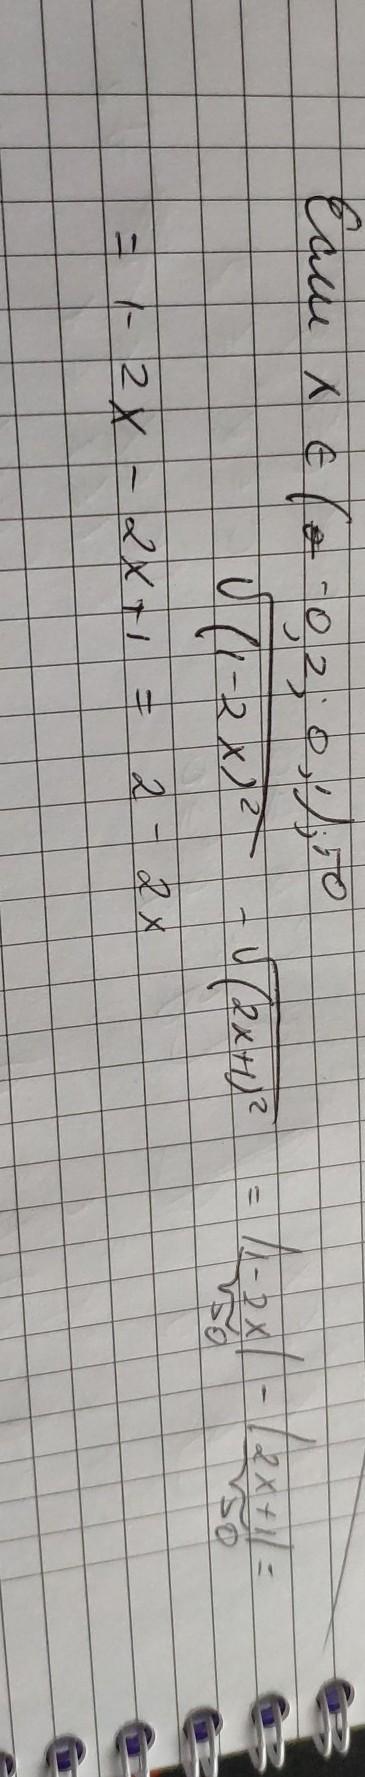 Если x ∈ (-0,2; 0,1), то
√(1-2x)² - √(2x+1)² = |1-2x| - |2x+1| =
>0 >0
= 1-2x - 2x+1 = 2-2x